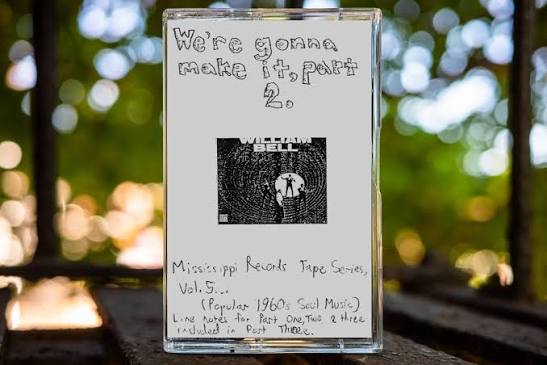 We're gonna
make it, part
2.
WILLIAM
BELL
Mississippi Records Tape Series,
Vol. 5...
(Popular 1960s Soul Music)
Line notes for Part One, Two & three
included in Part Three.